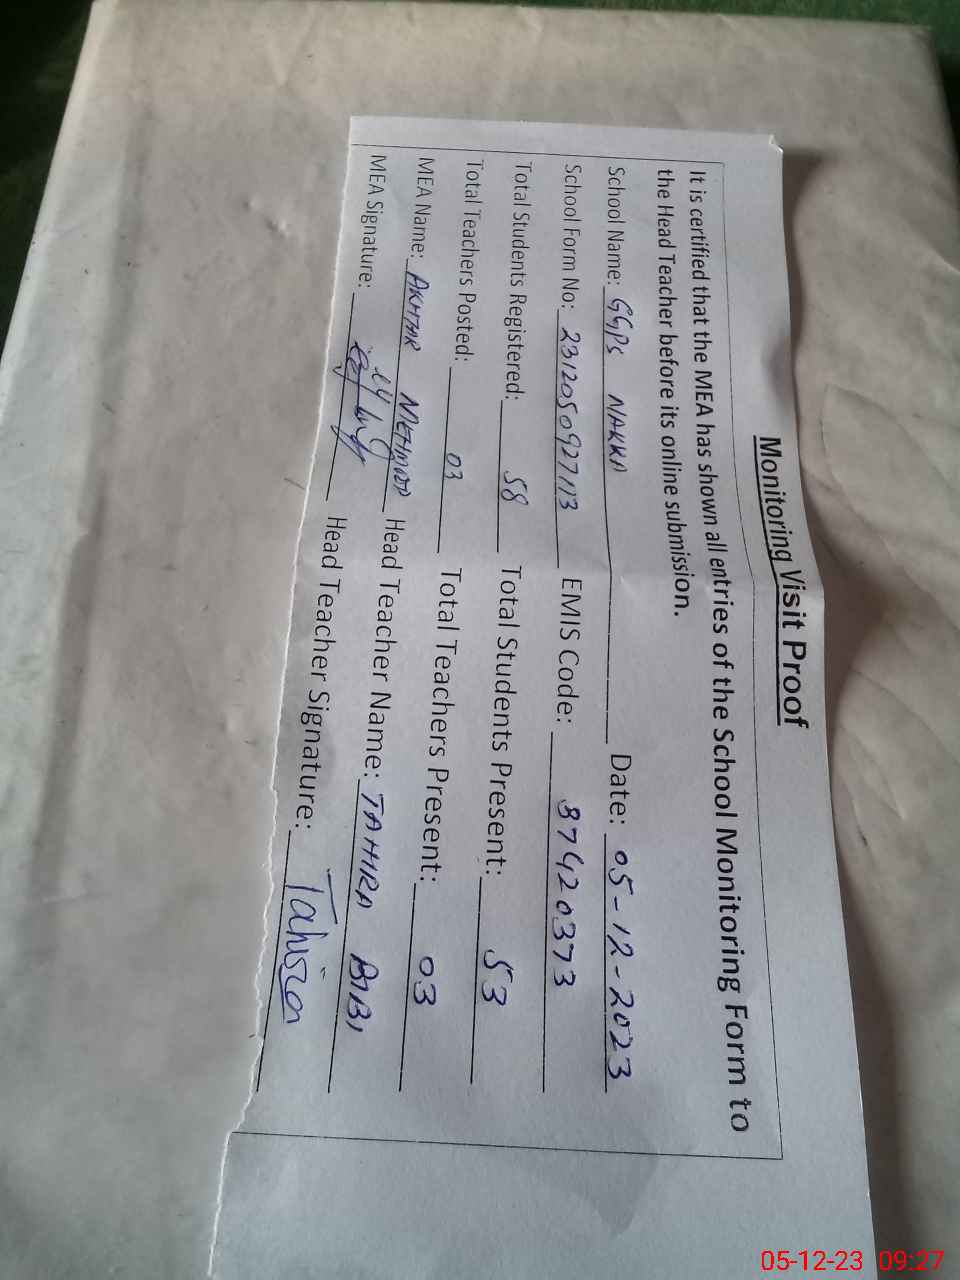 Monitoring Visit Proof
It is certified that the MEA has shown all entries of the School Monitoring Form to
the Head Teacher before its online submission.
School Name: GGPS NAKKA Date: 05-12-2023
School Form No: 2312050927113 EMIS Code: 37420373
Total Students Registered: 58 Total Students Present: 53
Total Teachers Posted: 03 Total Teachers Present: 03
MEA Name: AKHTAR MEHMOOD Head Teacher Name: TAHIRA BIBI
MEA Signature: Head Teacher Signature: Tahira
05-12-23 09:27